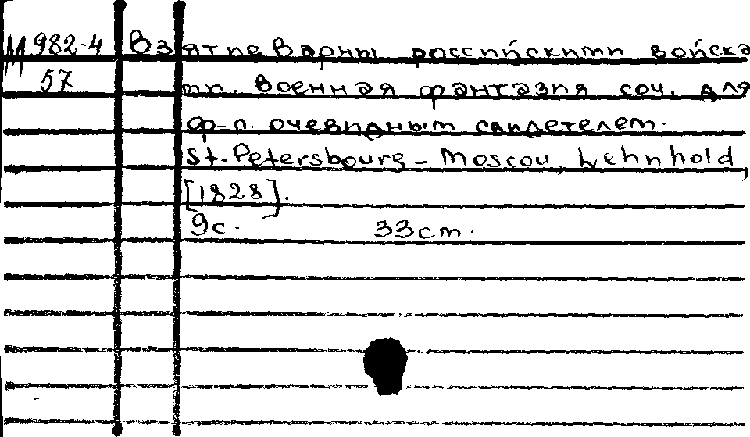 М 982-4 Взятие Варны российскими войска
57 ми. Военная фантазия соч. для
ф-п. очевидным свидетелем.
St.-Petersbourg - Moscou, Lehnhold,
[1828].
9с. 33cm.